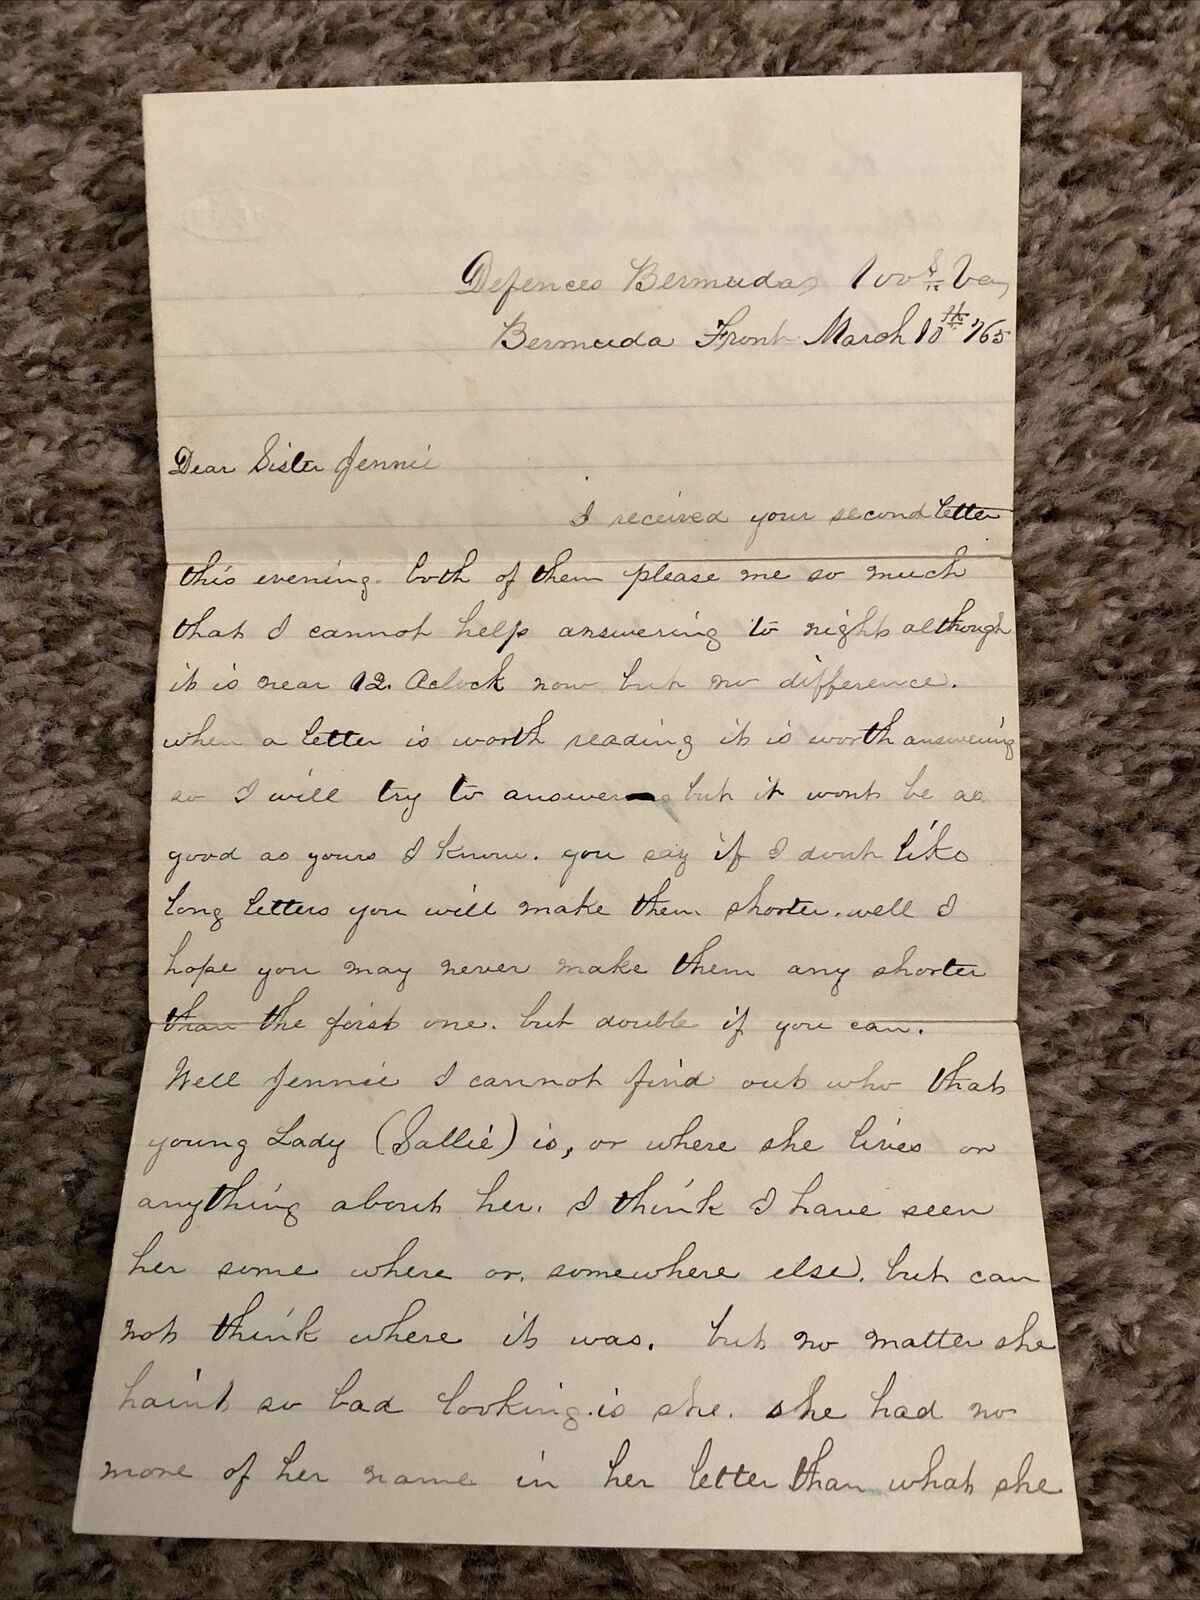 Defences Bermuda, 100s Va,
Bermuda Front March 10th /65
Dear Sister Jennie
I received your second letter
this evening. both of them please me so much
that I cannot help answering to night although
it is near 12. Aclock now but no difference.
when a letter is worth reading it is worth answering
so I will try to answer but it wont be as
good as yours I know. you say if I dont like
long letters you will make them shorter. well I
hope you may never make them any shorter
than the first one. but double if you can.
Well Jennie I cannot find out who that
young Lady (Sallie) is, or where she lives or
anything about her. I think I have seen
her some where or, somewhere else, but can
not think where it was. but no matter she
haint so bad looking is she. she had no
more of her name in her letter than what she